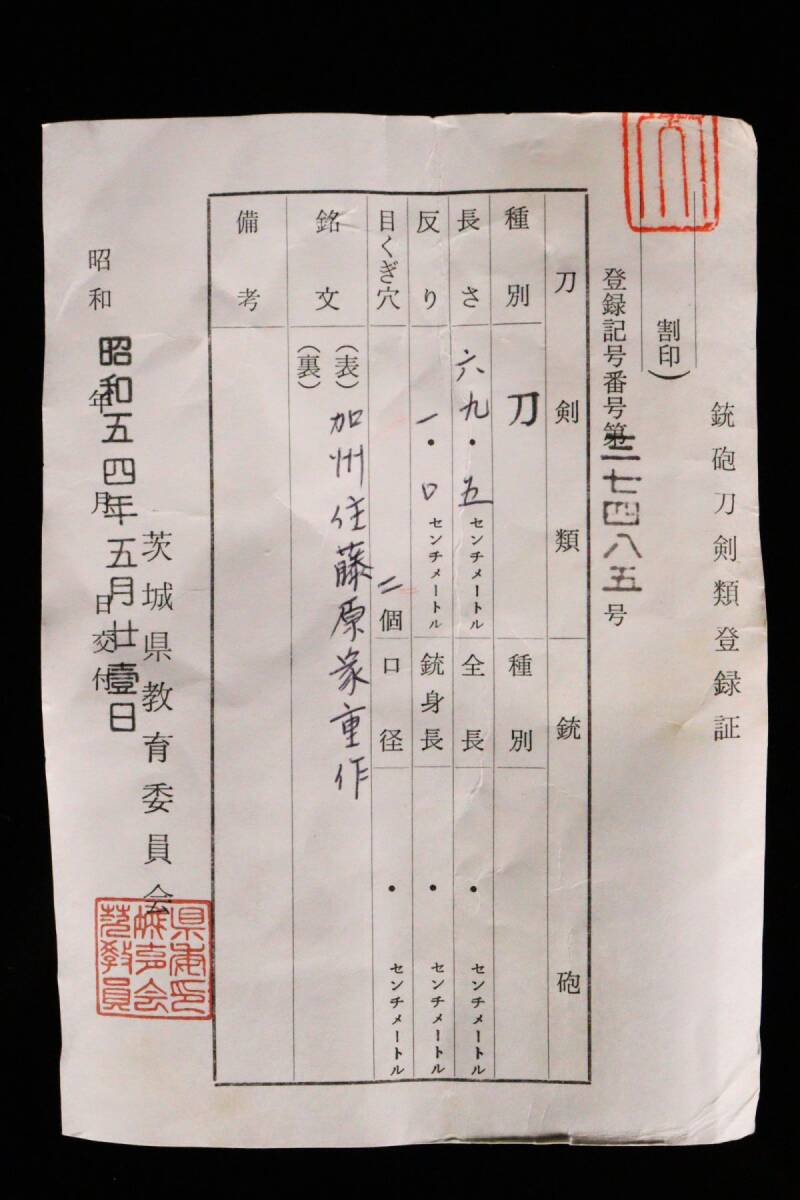 銃砲刀剣類登録証
(割印)
登録記号番号第三七四八五号
刀剣類
銃砲
種別
刀
種別
長さ
六九・五センチメートル
全長
・センチメートル
反り
一・〇センチメートル
銃身長
・センチメートル
目くぎ穴
二個
口径
・センチメートル
銘文
(表)加州住藤原家重作
(裏)
備考
茨城県教育委員会
昭和 年 月 日交付
昭和五四年五月廿壹日
茨城県
教育委
員会印